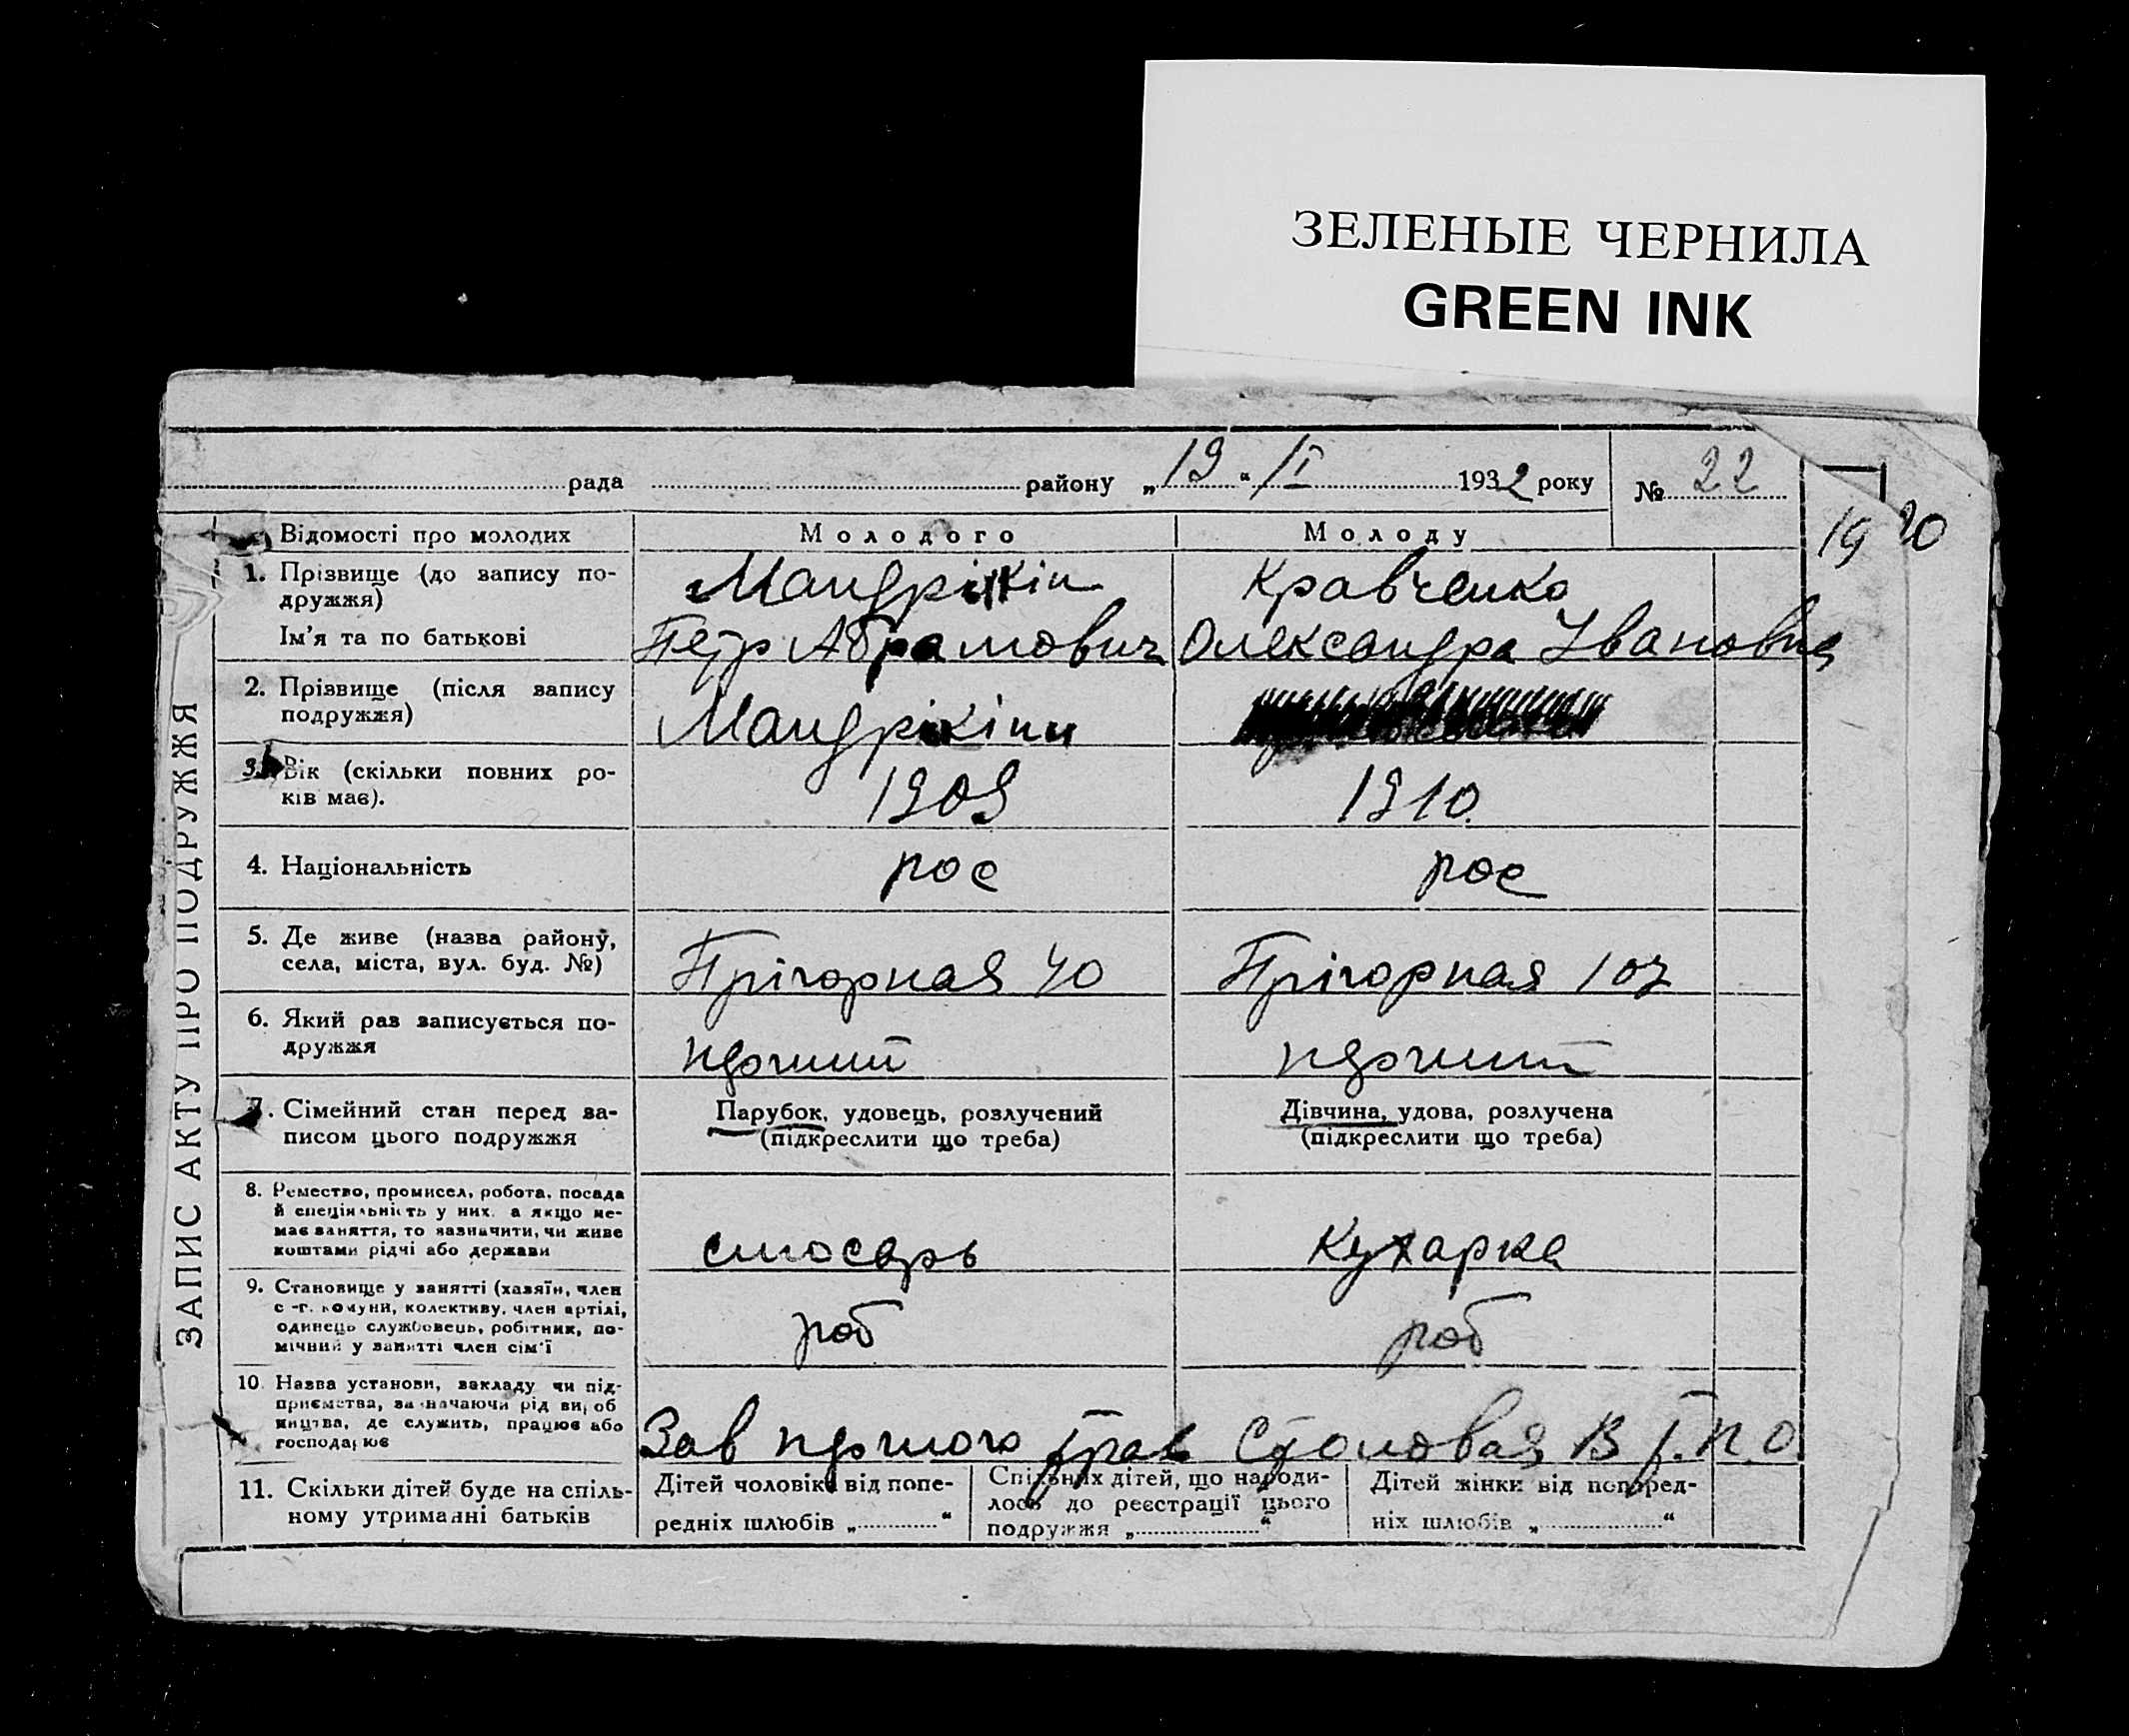 ЗЕЛЕНЫЕ ЧЕРНИЛА
GREEN INK
рада района „19“ /I 1932 року № 22
19 20
ЗАПИС АКТУ ПРО ПОДРУЖЖЯ
Відомості про молодих Молодого Молоду
1. Прізвище (до запису по-
дружжя)
Мандрікін Кравченко
Ім’я та по батькові Петр Абрамович Олександра Івановна
2. Прізвище (після запису
подружжя)
Мандрікіни
3. Вік (скільки повних ро-
ків має).
1909 1910.
4. Національність рос рос
5. Де живе (назва району,
села, міста, вул. буд. №)
Прігорная 40 Прігорная 107
6. Який раз записується по-
дружжя
перший перший
7. Сімейний стан перед за-
писом цього подружжя
Парубок, удовець, розлучений
(підкреслити що треба)
Дівчина, удова, розлучена
(підкреслити що треба)
8. Ремество, промисел, робота, посада
й спеціяльність у них, а якщо не-
має заняття, то зазначити, чи живе
коштами рідні або держави
слюсарь Кухарка
9. Становище у занятті (хазяїн, член
с.-г. комуни, колективу, член артілі,
одинець службовець, робітник, по-
мічний у занятті член сім’ї
роб роб
10. Назва установи, закладу чи під-
приємства, зазначаючи рід вироб
ництва, де служить, працює або
господарює
Зав першого Трав Столовая В Г.П.О.
11. Скільки дітей буде на спіль-
ному утриманні батьків
Дітей чоловіка від попе-
редніх шлюбів „ “
Спільних дітей, що народи-
лось до реєстрації цього
подружжя „ “
Дітей жінки від поперед-
ніх шлюбів „ “